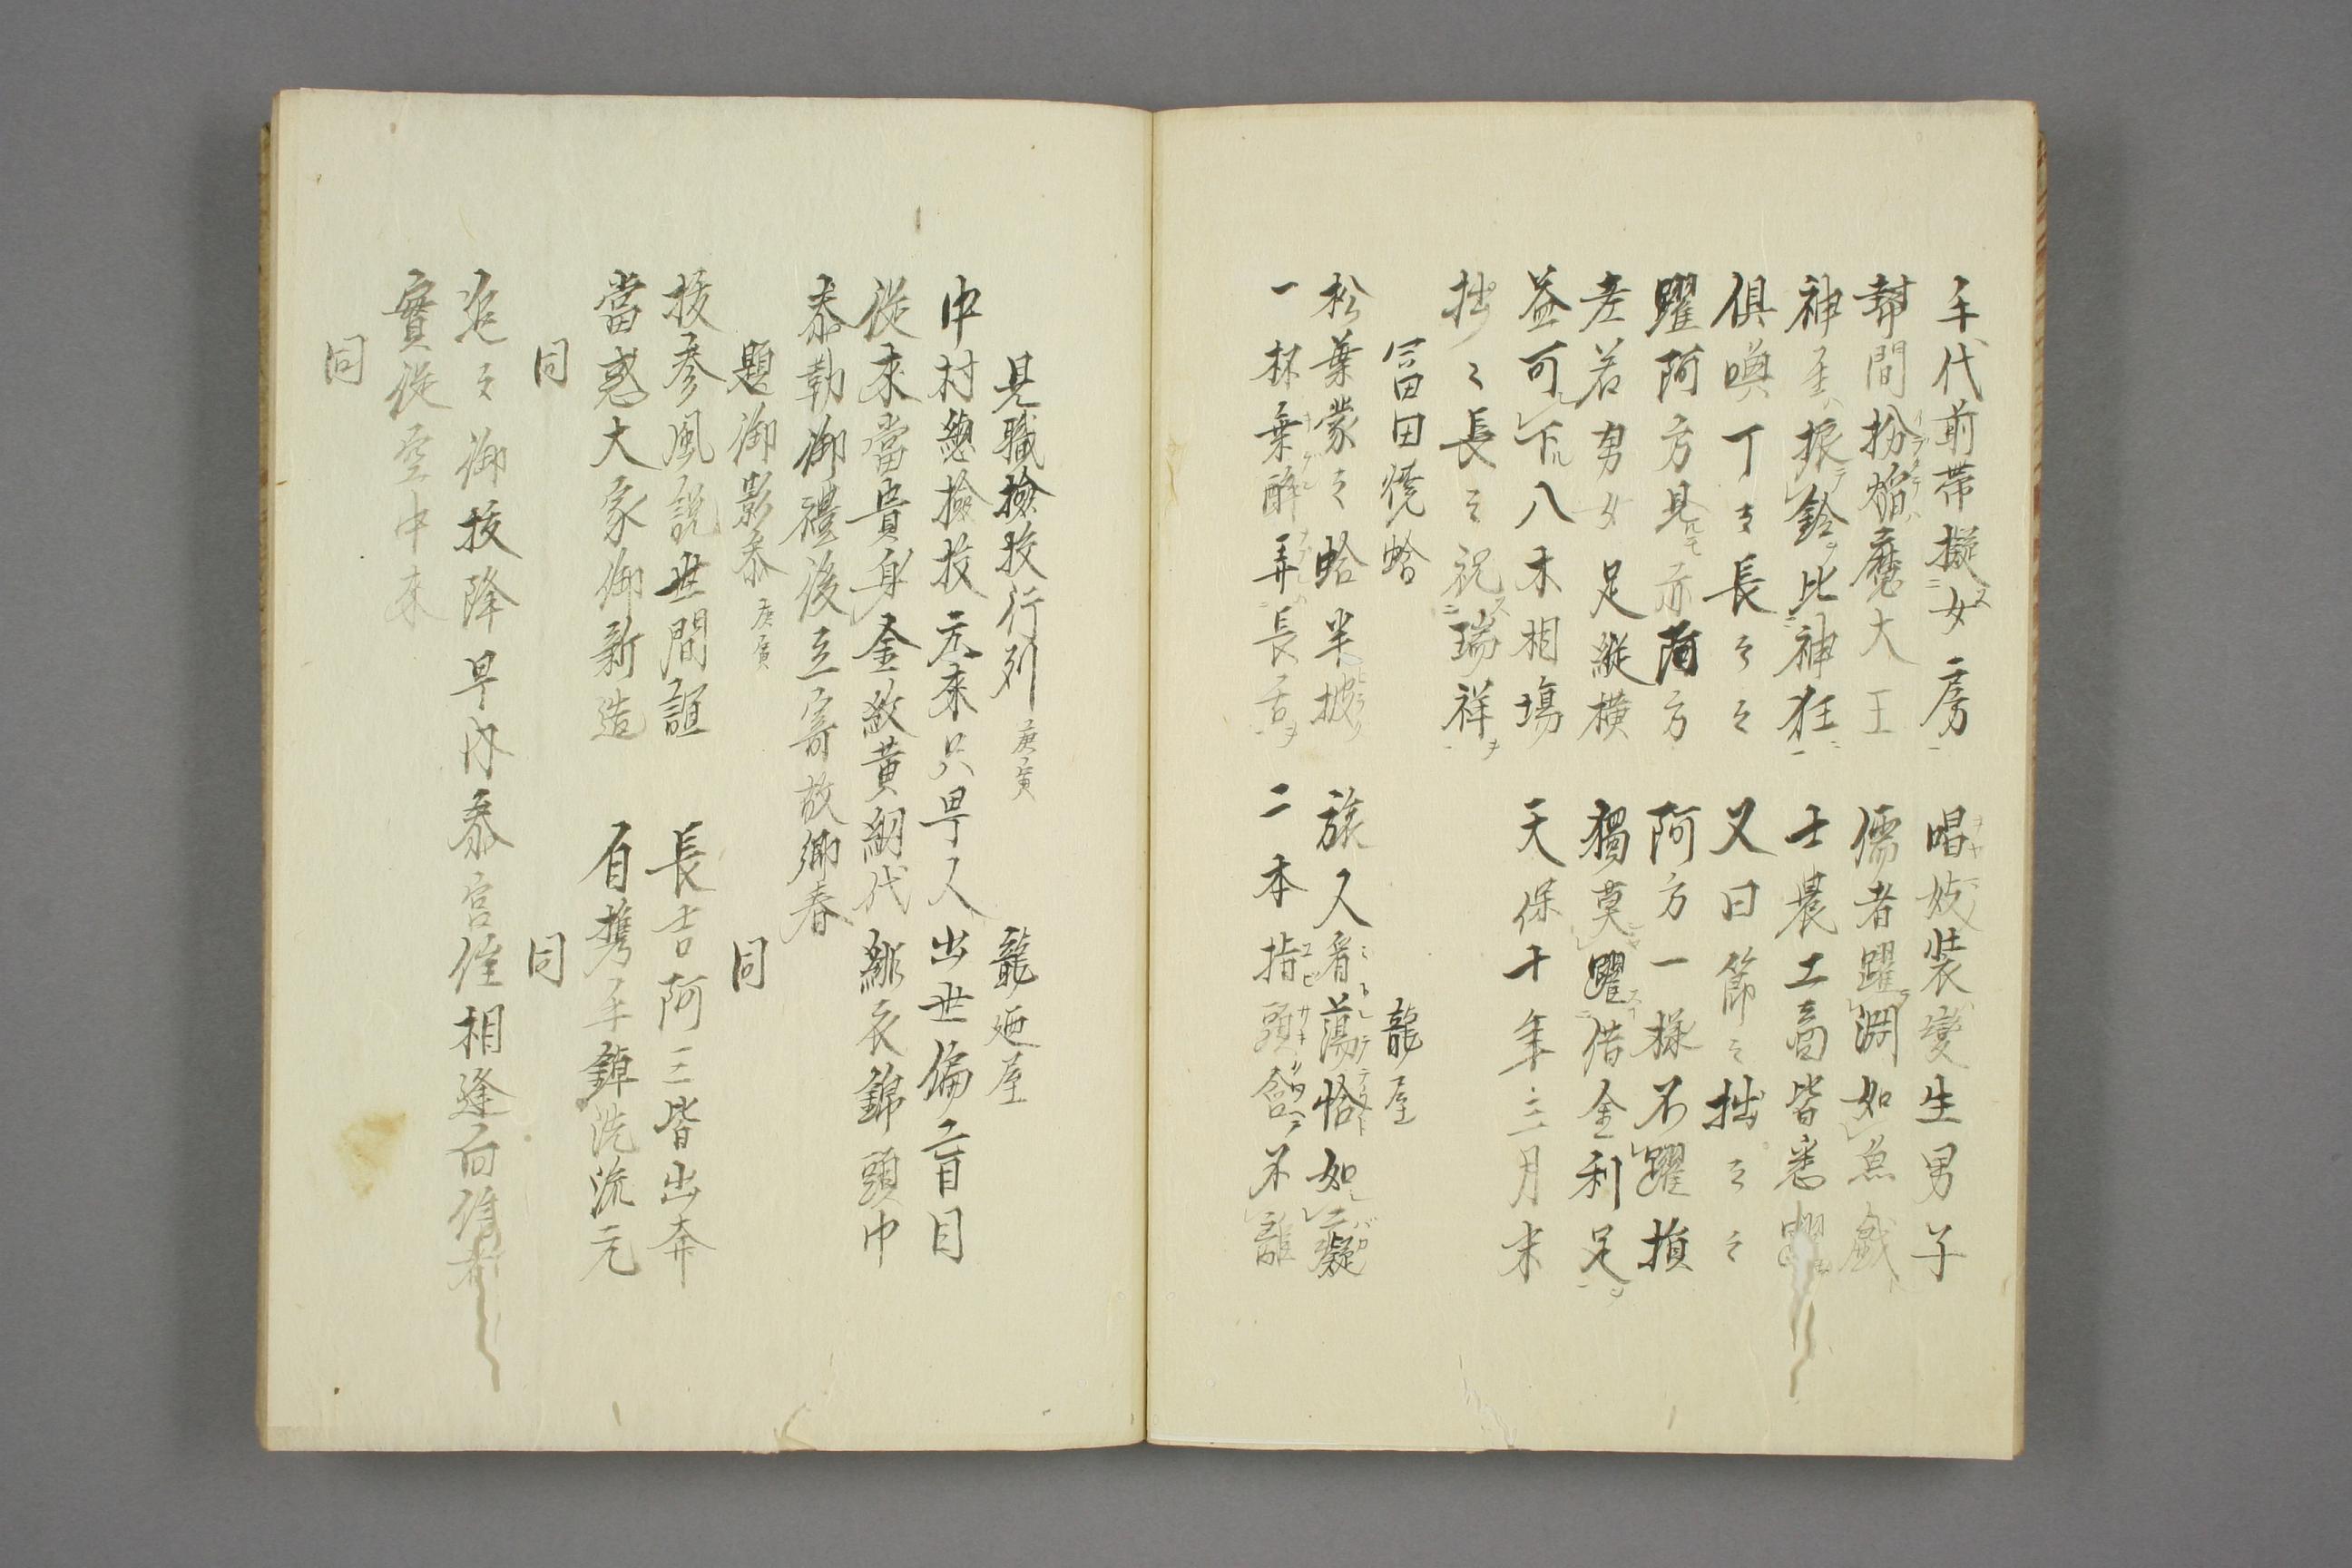 手代前帯擬女房　唱妓装變生男子
幇間扮焔魔大王　儒者躍淵如魚戯
神主振鈴比神狂　士農工商皆悉躍
俱喚丁々長々々　又曰節々拙々々
躍阿方見亦阿方　阿方一樣不躍損
老若男女足縱横　獨莫躍借金利足
益可下八木相場　天保十年三月末
拙々長々祝瑞祥
冨田焼蛤　龍屋
松葉蒙々蛤半披　旅人看蕩恰如癡
一杯乗酔弄長舌　二本指頭含不離
見職撿挍行列　庚寅　龍廼屋
中村總撿挍元來只畢人出世偏盲目
從來當貴身金紋黄網代緋衣錦頭巾
泰勤御禮後立寄故郷春
題御影泰　庚寅　同
抜參風説世間諠　長吉阿三皆出奔
當惑大家御新造　自携手鍋洗流元
同　同
迄々御抜降早
泰宮
相逢向
實從空中來
同